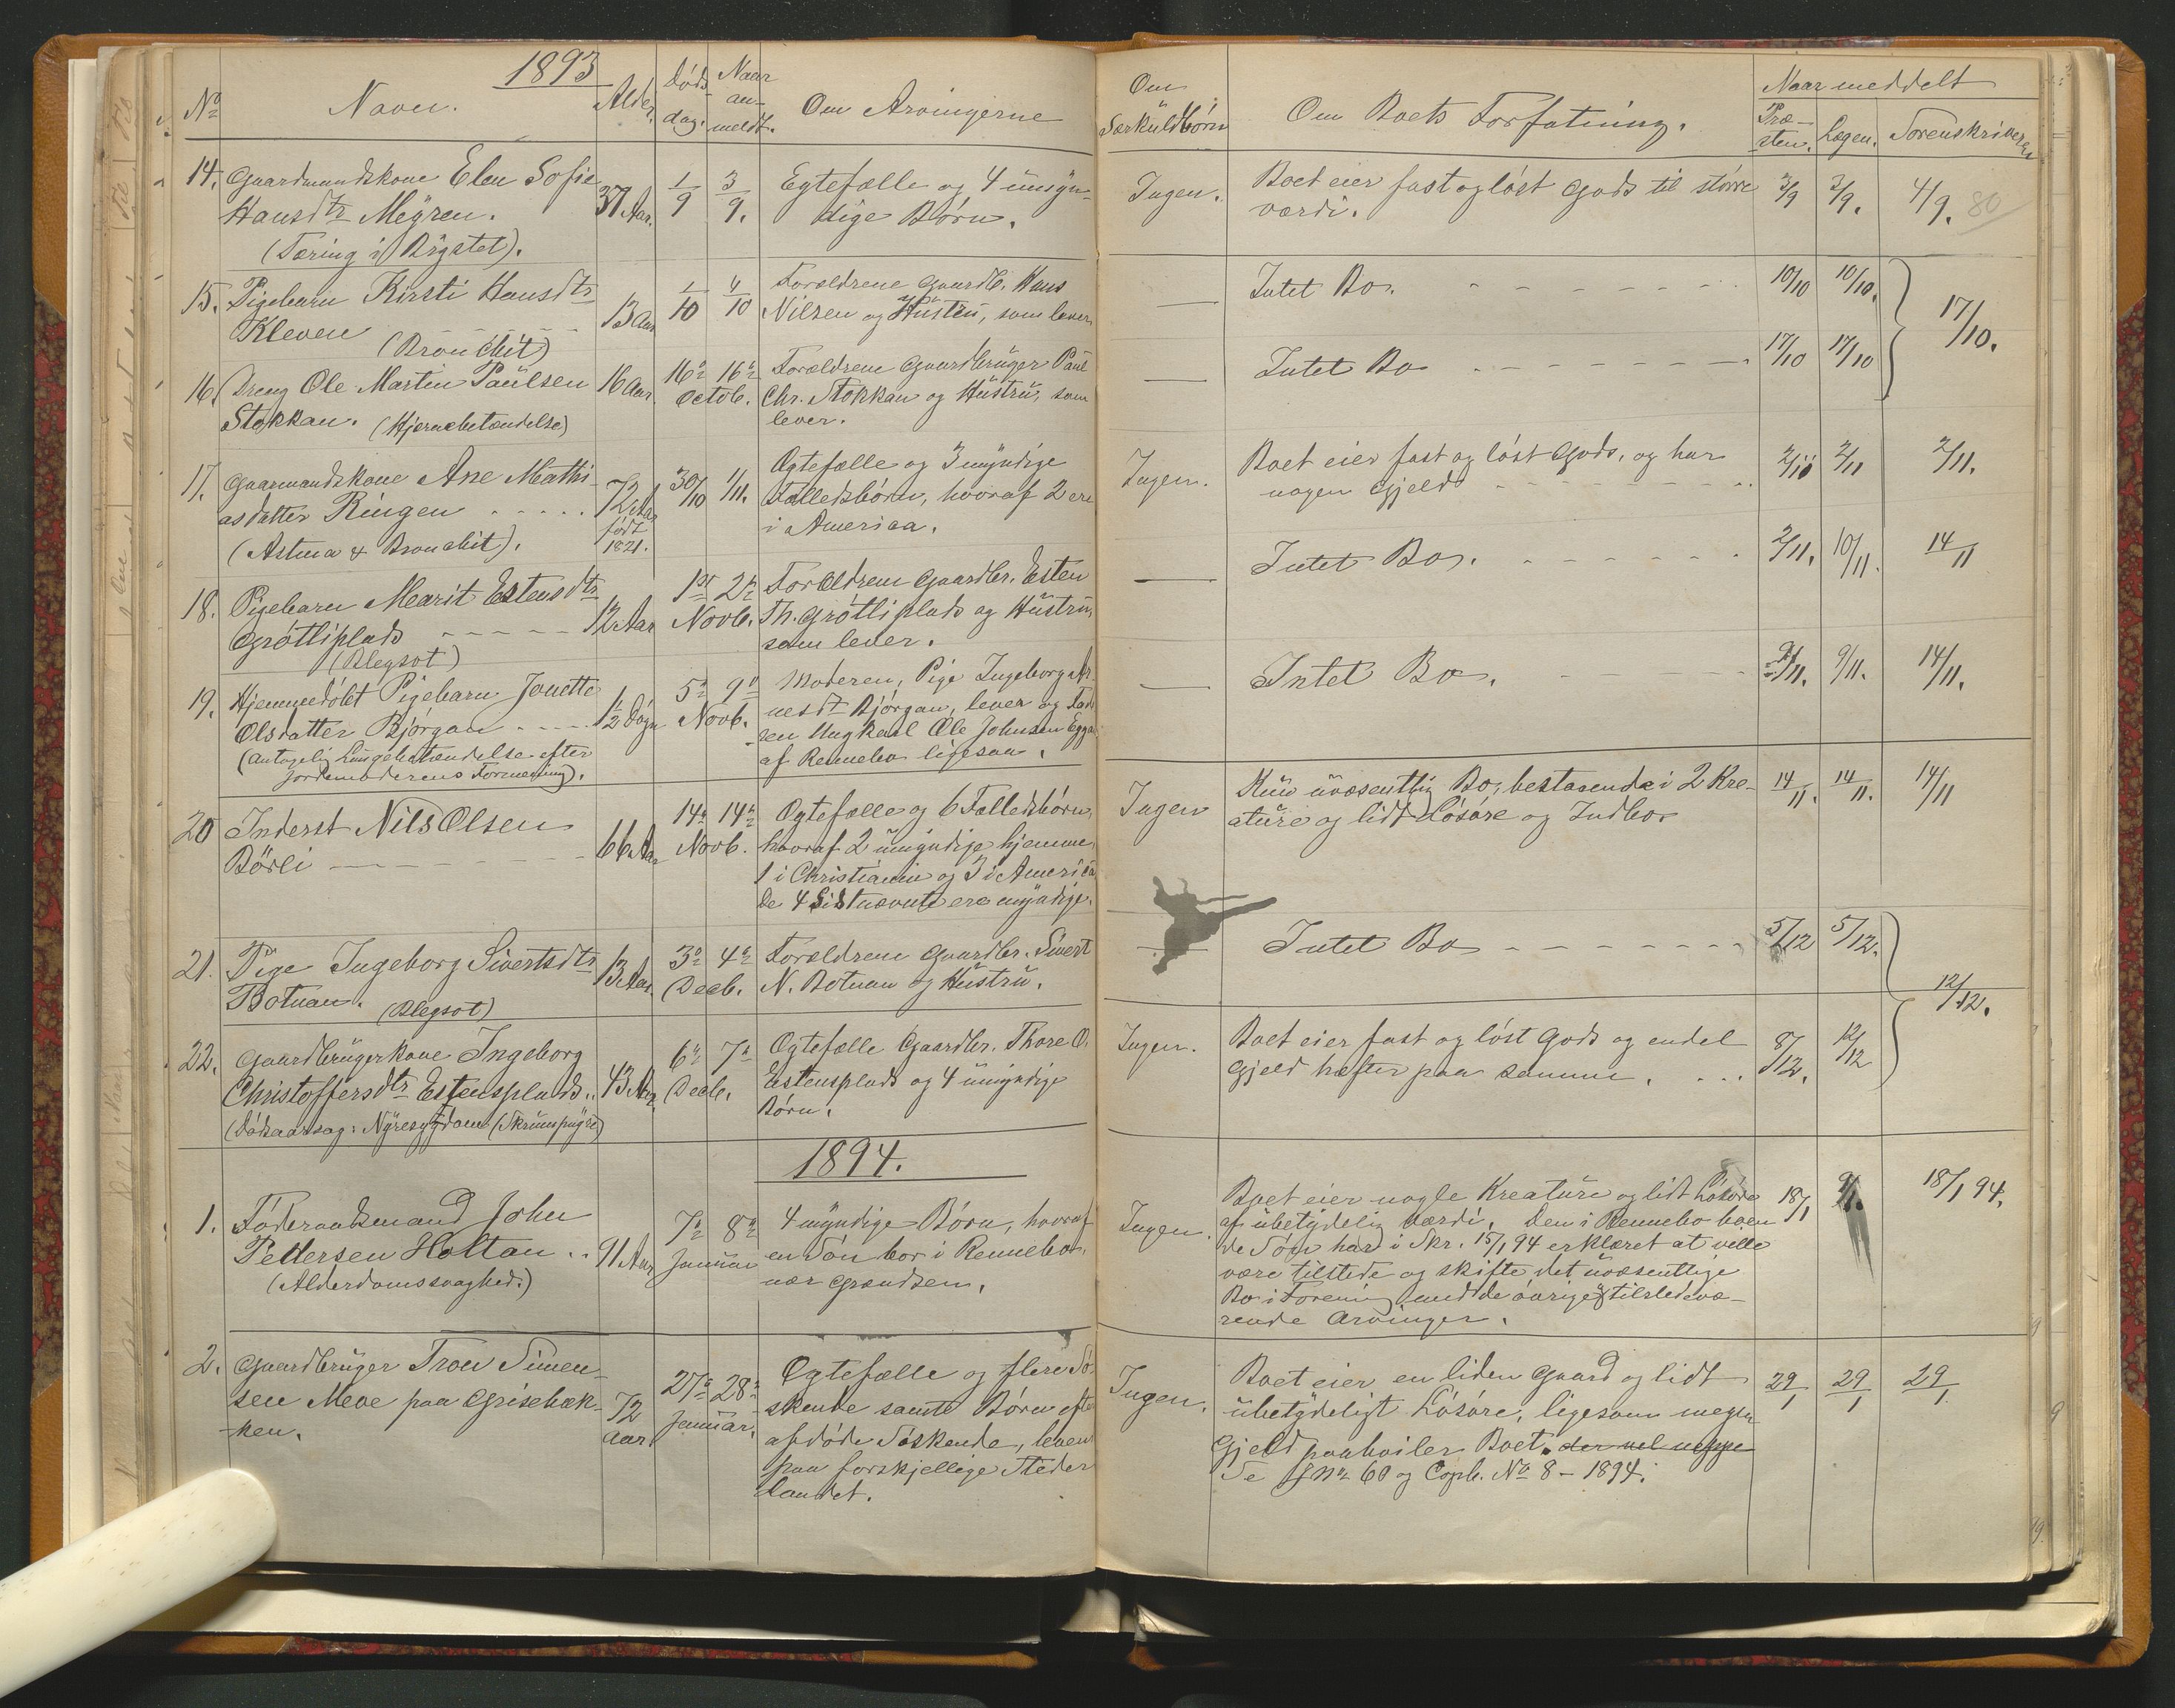 1893
No Navn. Alder. Døds dag. Naar an- meldt. Om Arvingerne
14. Gaardmandskone Elen Sofie
Hansdtr Mÿren. 37 Aar. 1/9 3/9. Egtefælle og 4 umÿn-
dige Børn.
(Tæring i Brÿstet).
15. Pigebarn Kirsti Hansdtr
Kleven 13 Aar 1/10 4/10 Forældrene Gaardb. Hans
Nilsen og Hustru, som lever
(Bronchit)
16. Dreng Ole Martin Paulsen
Stokkan. (Hjernebetændelse) 16 Aar. 16de 16de Octob. Forældrene Gaardbruger Paul
Chr. Stokkan og Hustru, som
lever.
17. Gaarmandskone Ane Mathi-
asdatter Ringen 72 Aar født 1821. 30/10 1/11. Ægtefælle og 3 mÿndige
Fælledsbørn, hvoraf 2 ere
i America.
(Astma & Bronchit).
18. Pigebarn Marit Estensdtr
Grøtliplads 12 Aar 1ste 2den Novb. Forældrene Gaardbr. Esten
Th. Grøtliplads og Hustru,
som lever.
(Blegsot)
19. Hjemmedøbt Pigebarn Jonette
Olsdatter Bjørgan 1½ Døgn 5te 9de Novb. Moderen, Pige Ingeborg Ar-
nesdt Bjørgan, lever og Fad-
ren Ungkarl Ole Johnsen Eggan
af Rennebo ligesaa.
(Antagelig Lungebetændelse efter
Jordemoderens Formening).
20 Inderst Nils Olsen
Børli 66 Aar 14de 14de Novb. Ægtefælle og 6 Fælledsbørn,
hvoraf 2 umÿndige hjemme,
1 i Christiania og 3 i America
de 4 Sidstnævnte ere mÿndige.
21. Pige Ingeborg Sivertsdtr
Botnan. (Blegsot) 13 Aar. 3de 4de Decb. Forældrene Gaardbr. Sivert
N. Botnan og Hustru.
22. Gaardbrugerkone Ingeborg
Christoffersdtr Estensplads. 43 Aar. 6te 7de Decb. Ægtefælle Gaardbr. Thore O.
Estensplads og 4 umÿndige
Børn.
(Dødsaarsag: Nÿresÿgdom (Skrumpnÿre)
1894.
1. Føderaadsmand John
Pedersen Holtan 91 Aar 7de 8de Januar 4 mÿndige Børn, hvoraf
en Søn bor i Rennebo,
nær Grændsen.
(Alderdomssvaghed.)
2. Gaardbruger Tron Simen-
sen Meve paa Grisebæk-
ken. 72 Aar 27de 28de Januar. Ægtefælle og flere Sø-
skende samt Børn efter
afdøde Søskende, lever
paa forskjellige Steder
Landet.
Om Særkuldbørn Om Boets Forfatning. Naar meddelt
Præ- sten. Lægen. Sorenskriveren
Ingen. Boet eier fast og løst Gods til større
værdi. 3/9 3/9. 4/9. 80
Intet Bo. 10/10 10/10.
17/10.
Intet Bo 17/10 17/10
Ingen. Boet eier fast og løst Gods, og har
nogen Gjeld 2/11 2/11 2/11.
Intet Bo. 2/11. 10/11. 14/11
Intet Bo. 9/11. 9/11. 14/11.
Ingen Kun uvæsentlig Bo, bestaaende i 2 Kre-
ature og lidt Løsøre og Indbo 14/11. 14/11. 14/11
Intet Bo 5/12 5/12.
12/12.
Ingen. Boet eier fast og løst Gods og endel
Gjeld hæfter paa samme. 8/12. 12/12
Ingen. Boet eier nogle Kreature og lidt Løsøre
af ubetÿdelig værdi. Den i Rennebo boen
de Søn har i Skr. 15/1 94 erklæret at ville
være tilstede og skifte det uvæsentlige
Bo i Forening med de øvrige tilstedevæ-
rende Arvinger. 18/1 18/1 94.
Ingen. Boet eier en liden Gaard og lidt
ubetÿdeligt Løsøre, ligesom megen
Gjeld paahviler Boet. der vel neppe
Se Jno 60 og Copb. No 8 - 1894. 29/1 29/1 29/1.